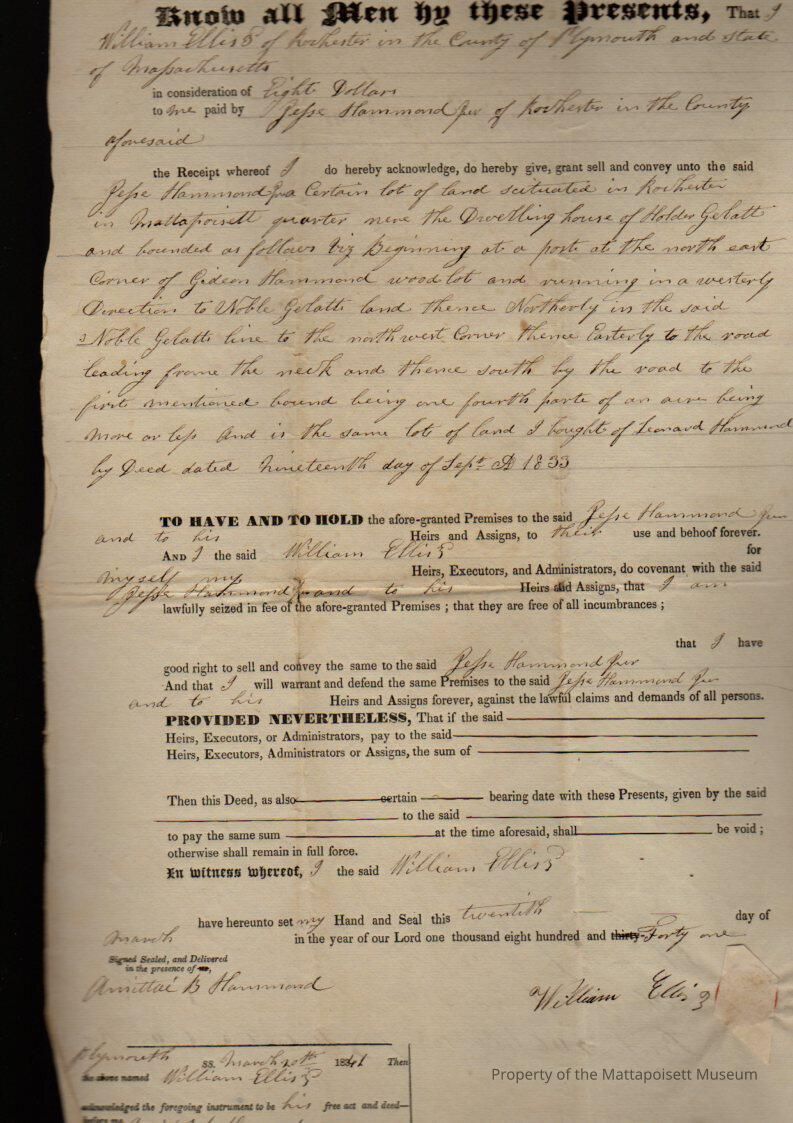 Know all Men by these Presents, That I
William Ellis 3 of Rochester in the County of Plymouth and State
of Massachusetts
in consideration of Eight Dollars
to me paid by Jesse Hammond Jur of Rochester in the County
aforesaid
the Receipt whereof I do hereby acknowledge, do hereby give, grant sell and convey unto the said
Jesse Hammond Jur a Certain lot of land scituated in Rochester
in Mattapoisett quarter nere the Dwelling house of Holder Gelatt
and bounded as follows viz Beginning at a poste at the north east
Corner of Gideon Hammond wood lot and running in a westerly
Direction to Noble Gelatts land thence Northerly in the said
Noble Gelatts line to the north west Corner thence Easterly to the road
leading frome the neck and thence south by the road to the
first mentioned bound being one fourth parte of an acre being
more or less And is the same lote of land I bought of Leonard Hammond
by Deed dated Nineteenth day of Sept AD 1833
TO HAVE AND TO HOLD the afore-granted Premises to the said Jesse Hammond Jur
and to his Heirs and Assigns, to their use and behoof forever.
AND I the said William Ellis 3 for
myself my Heirs, Executors, and Administrators, do covenant with the said
Jesse Hammond Jr and to his Heirs and Assigns, that I am
lawfully seized in fee of the afore-granted Premises ; that they are free of all incumbrances ;
that I have
good right to sell and convey the same to the said Jesse Hammond Jur
And that I will warrant and defend the same Premises to the said Jesse Hammond Jur
and to his Heirs and Assigns forever, against the lawful claims and demands of all persons.
PROVIDED NEVERTHELESS, That if the said
Heirs, Executors, or Administrators, pay to the said
Heirs, Executors, Administrators or Assigns, the sum of
Then this Deed, as also certain bearing date with these Presents, given by the said
to the said
to pay the same sum at the time aforesaid, shall be void ;
otherwise shall remain in full force.
In witness whereof, I the said William Ellis 3
have hereunto set my Hand and Seal this twentieth day of
March in the year of our Lord one thousand eight hundred and thirty Forty one
Signed Sealed, and Delivered
in the presence of us,
Amittai B Hammond
William Ellis 3
Plymouth SS. March 20th 1841 Then
the above named William Ellis 3
acknowledged the foregoing instrument to be his free act and deed—
before me
Property of the Mattapoisett Museum